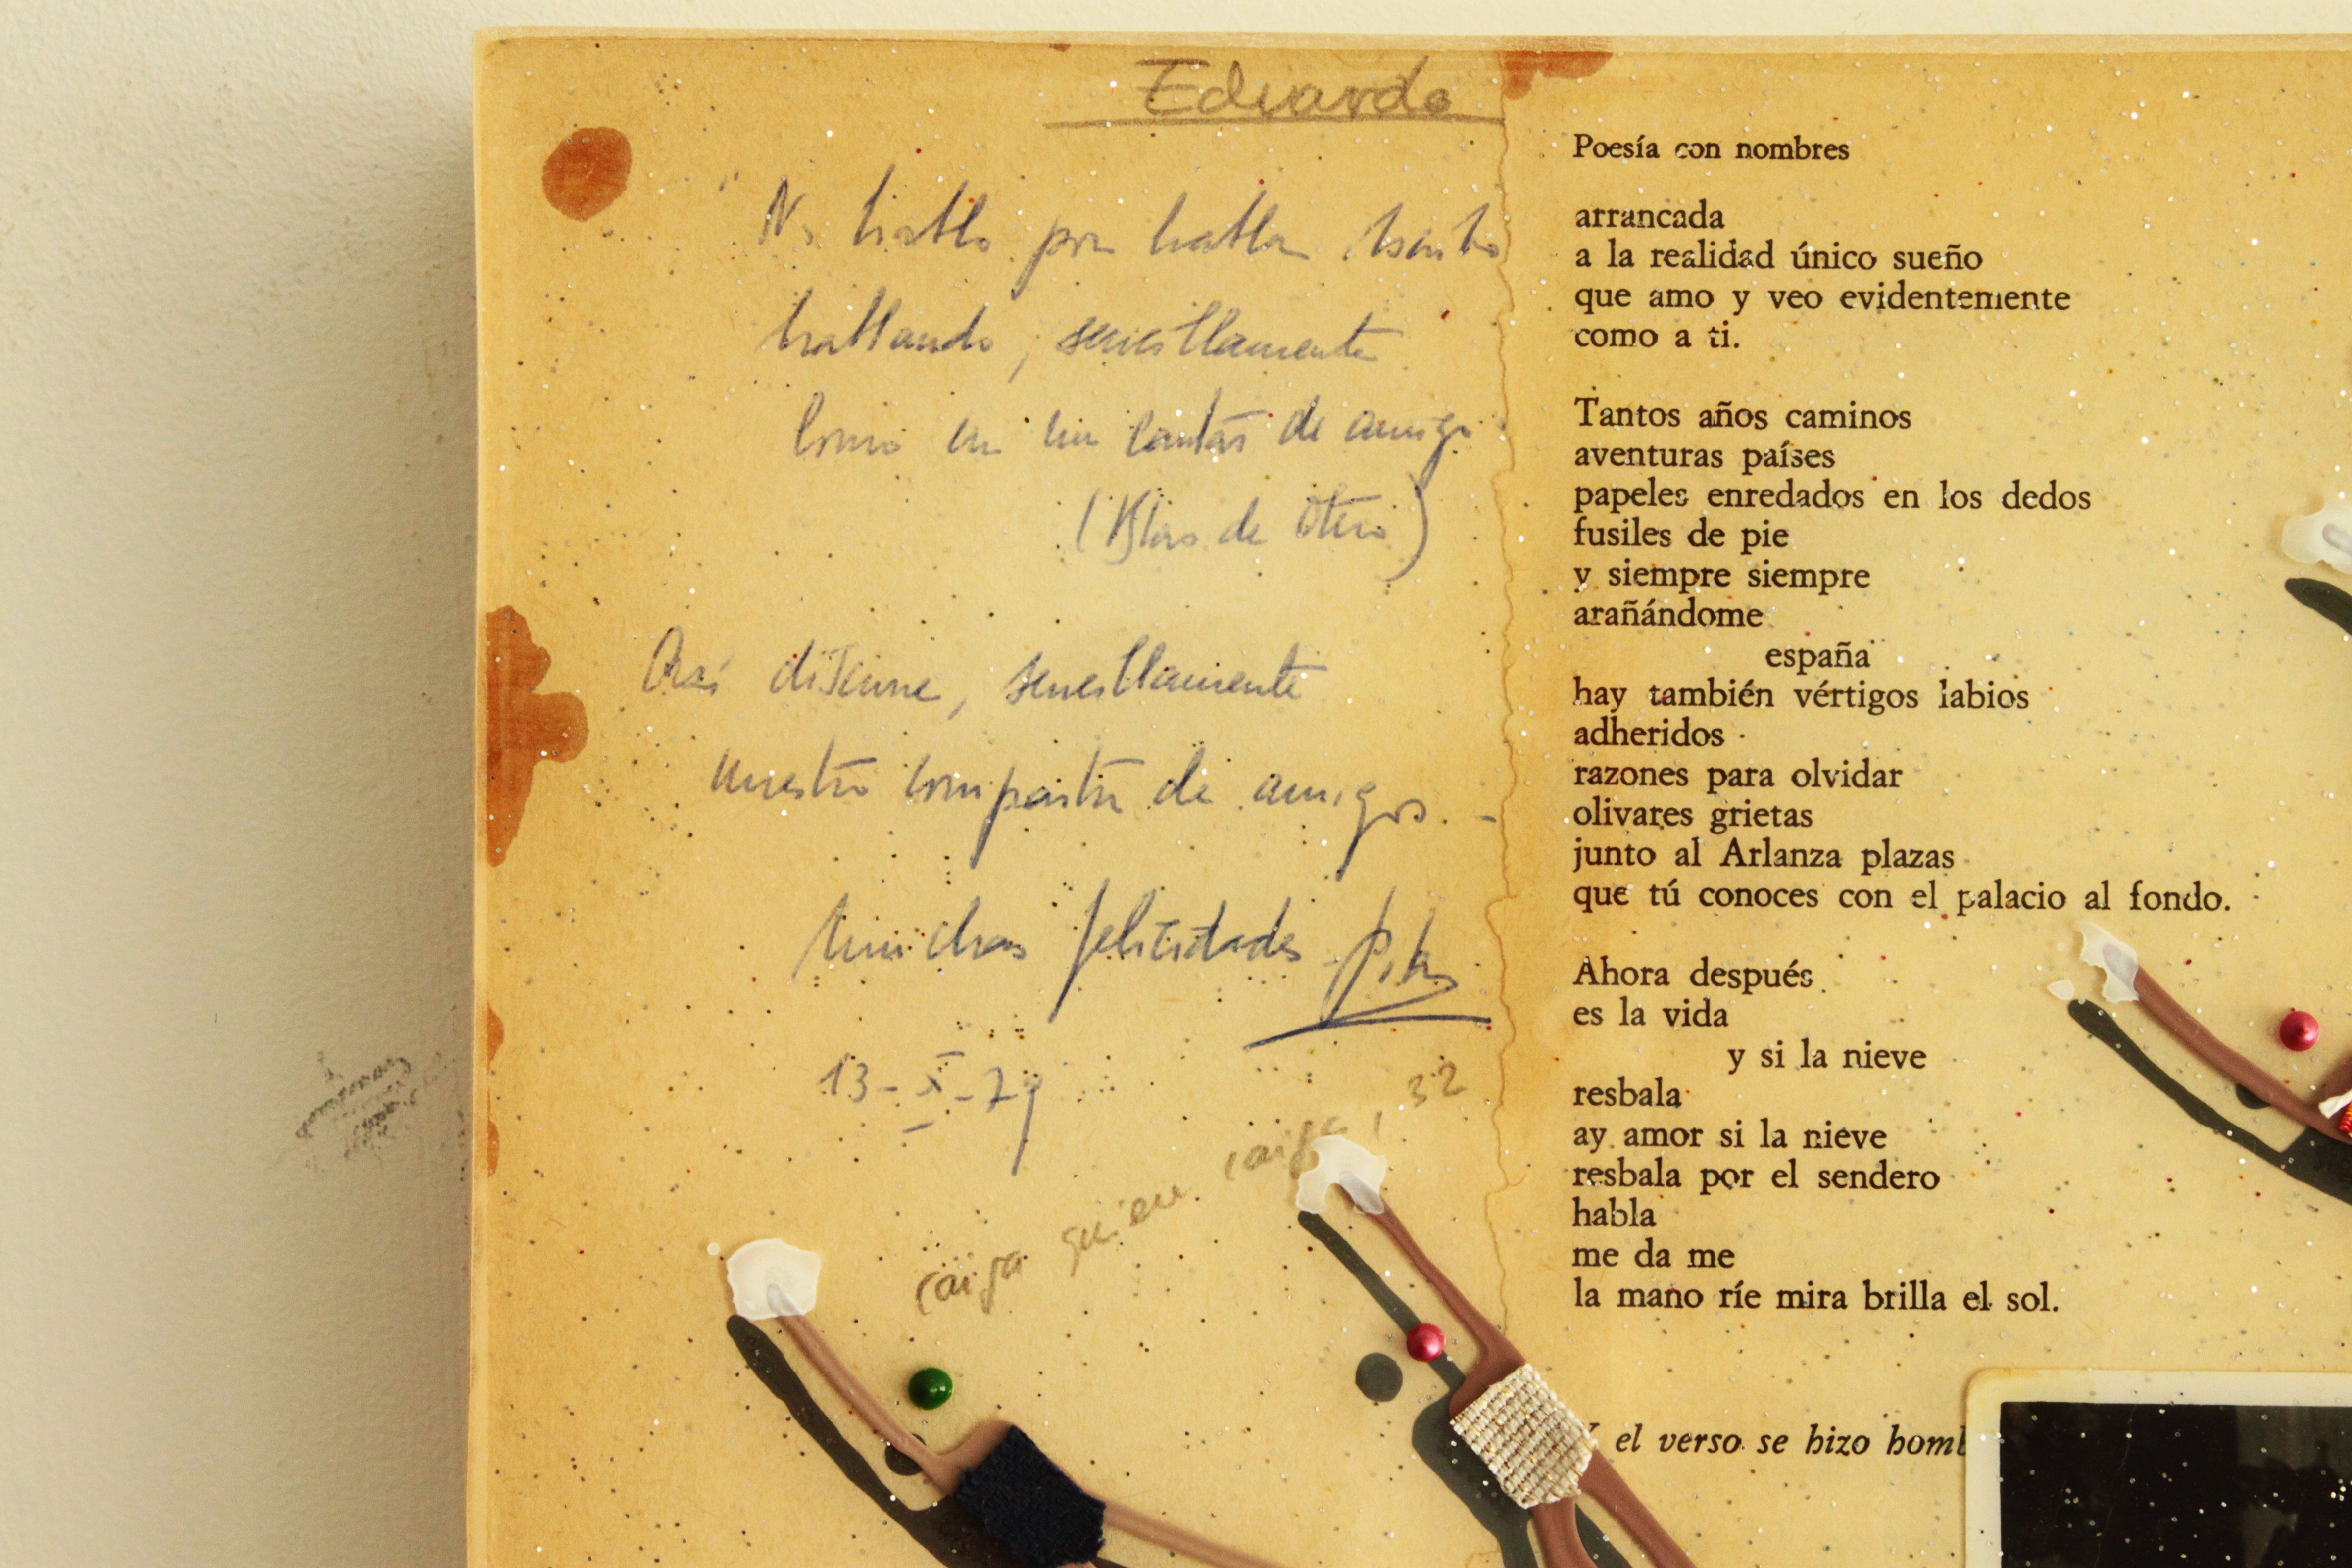 Eduardo
"No hablo por hablar, escribo
hablando, sencillamente
como en un cantar de amigo
(Blas de Otero)
Así dijeme, sencillamente
nuestro compartir de amigos. -
Muchas felicidades Pilar
13-X-79
caiga quien caiga, 32
Poesía con nombres
arrancada
a la realidad único sueño
que amo y veo evidentemente
como a ti.
Tantos años caminos
aventuras países
papeles enredados en los dedos
fusiles de pie
y siempre siempre
arañándome
españa
hay también vértigos labios
adheridos
razones para olvidar
olivares grietas
junto al Arlanza plazas
que tú conoces con el palacio al fondo.
Ahora después
es la vida
y si la nieve
resbala
ay amor si la nieve
resbala por el sendero
habla
me da me
la mano ríe mira brilla el sol.
Y el verso se hizo